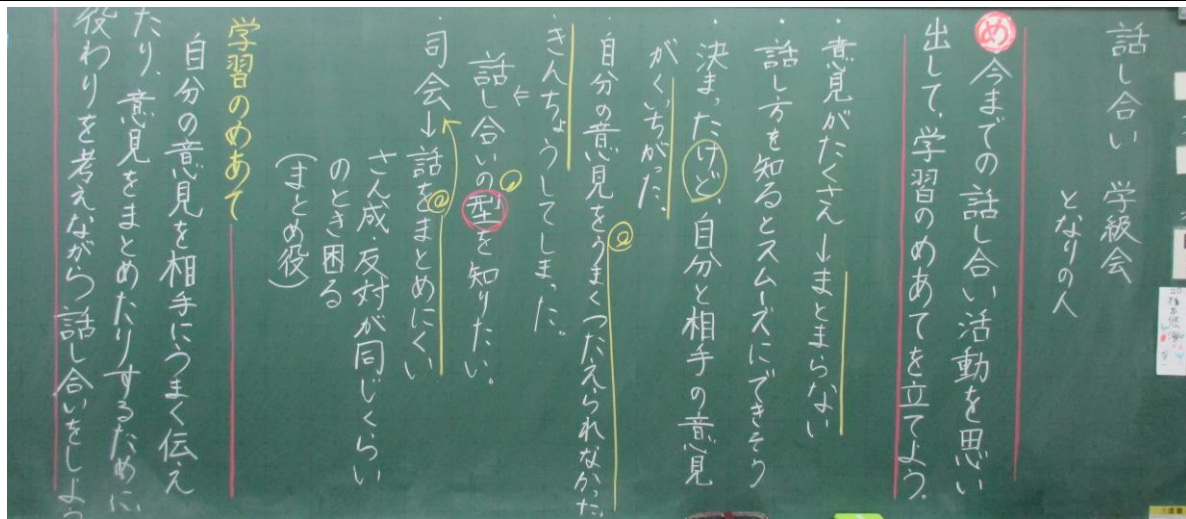 話し合い　学級会
となりの人
め 今までの話し合い活動を思い
出して、学習のめあてを立てよう。
・意見がたくさん→まとまらない
・話し方を知るとスムーズにできそう
・決まったけど、自分と相手の意見
がくいちがった。
・自分の意見をうまくつたえられなかった。
・きんちょうしてしまった。
話し合いの型を知りたい。
・司会→話をまとめにくい
さん成・反対が同じくらい
のとき困る
(まとめ役)
学習のめあて
自分の意見を相手にうまく伝え
たり、意見をまとめたりするために、
役わりを考えながら話し合いをしよう